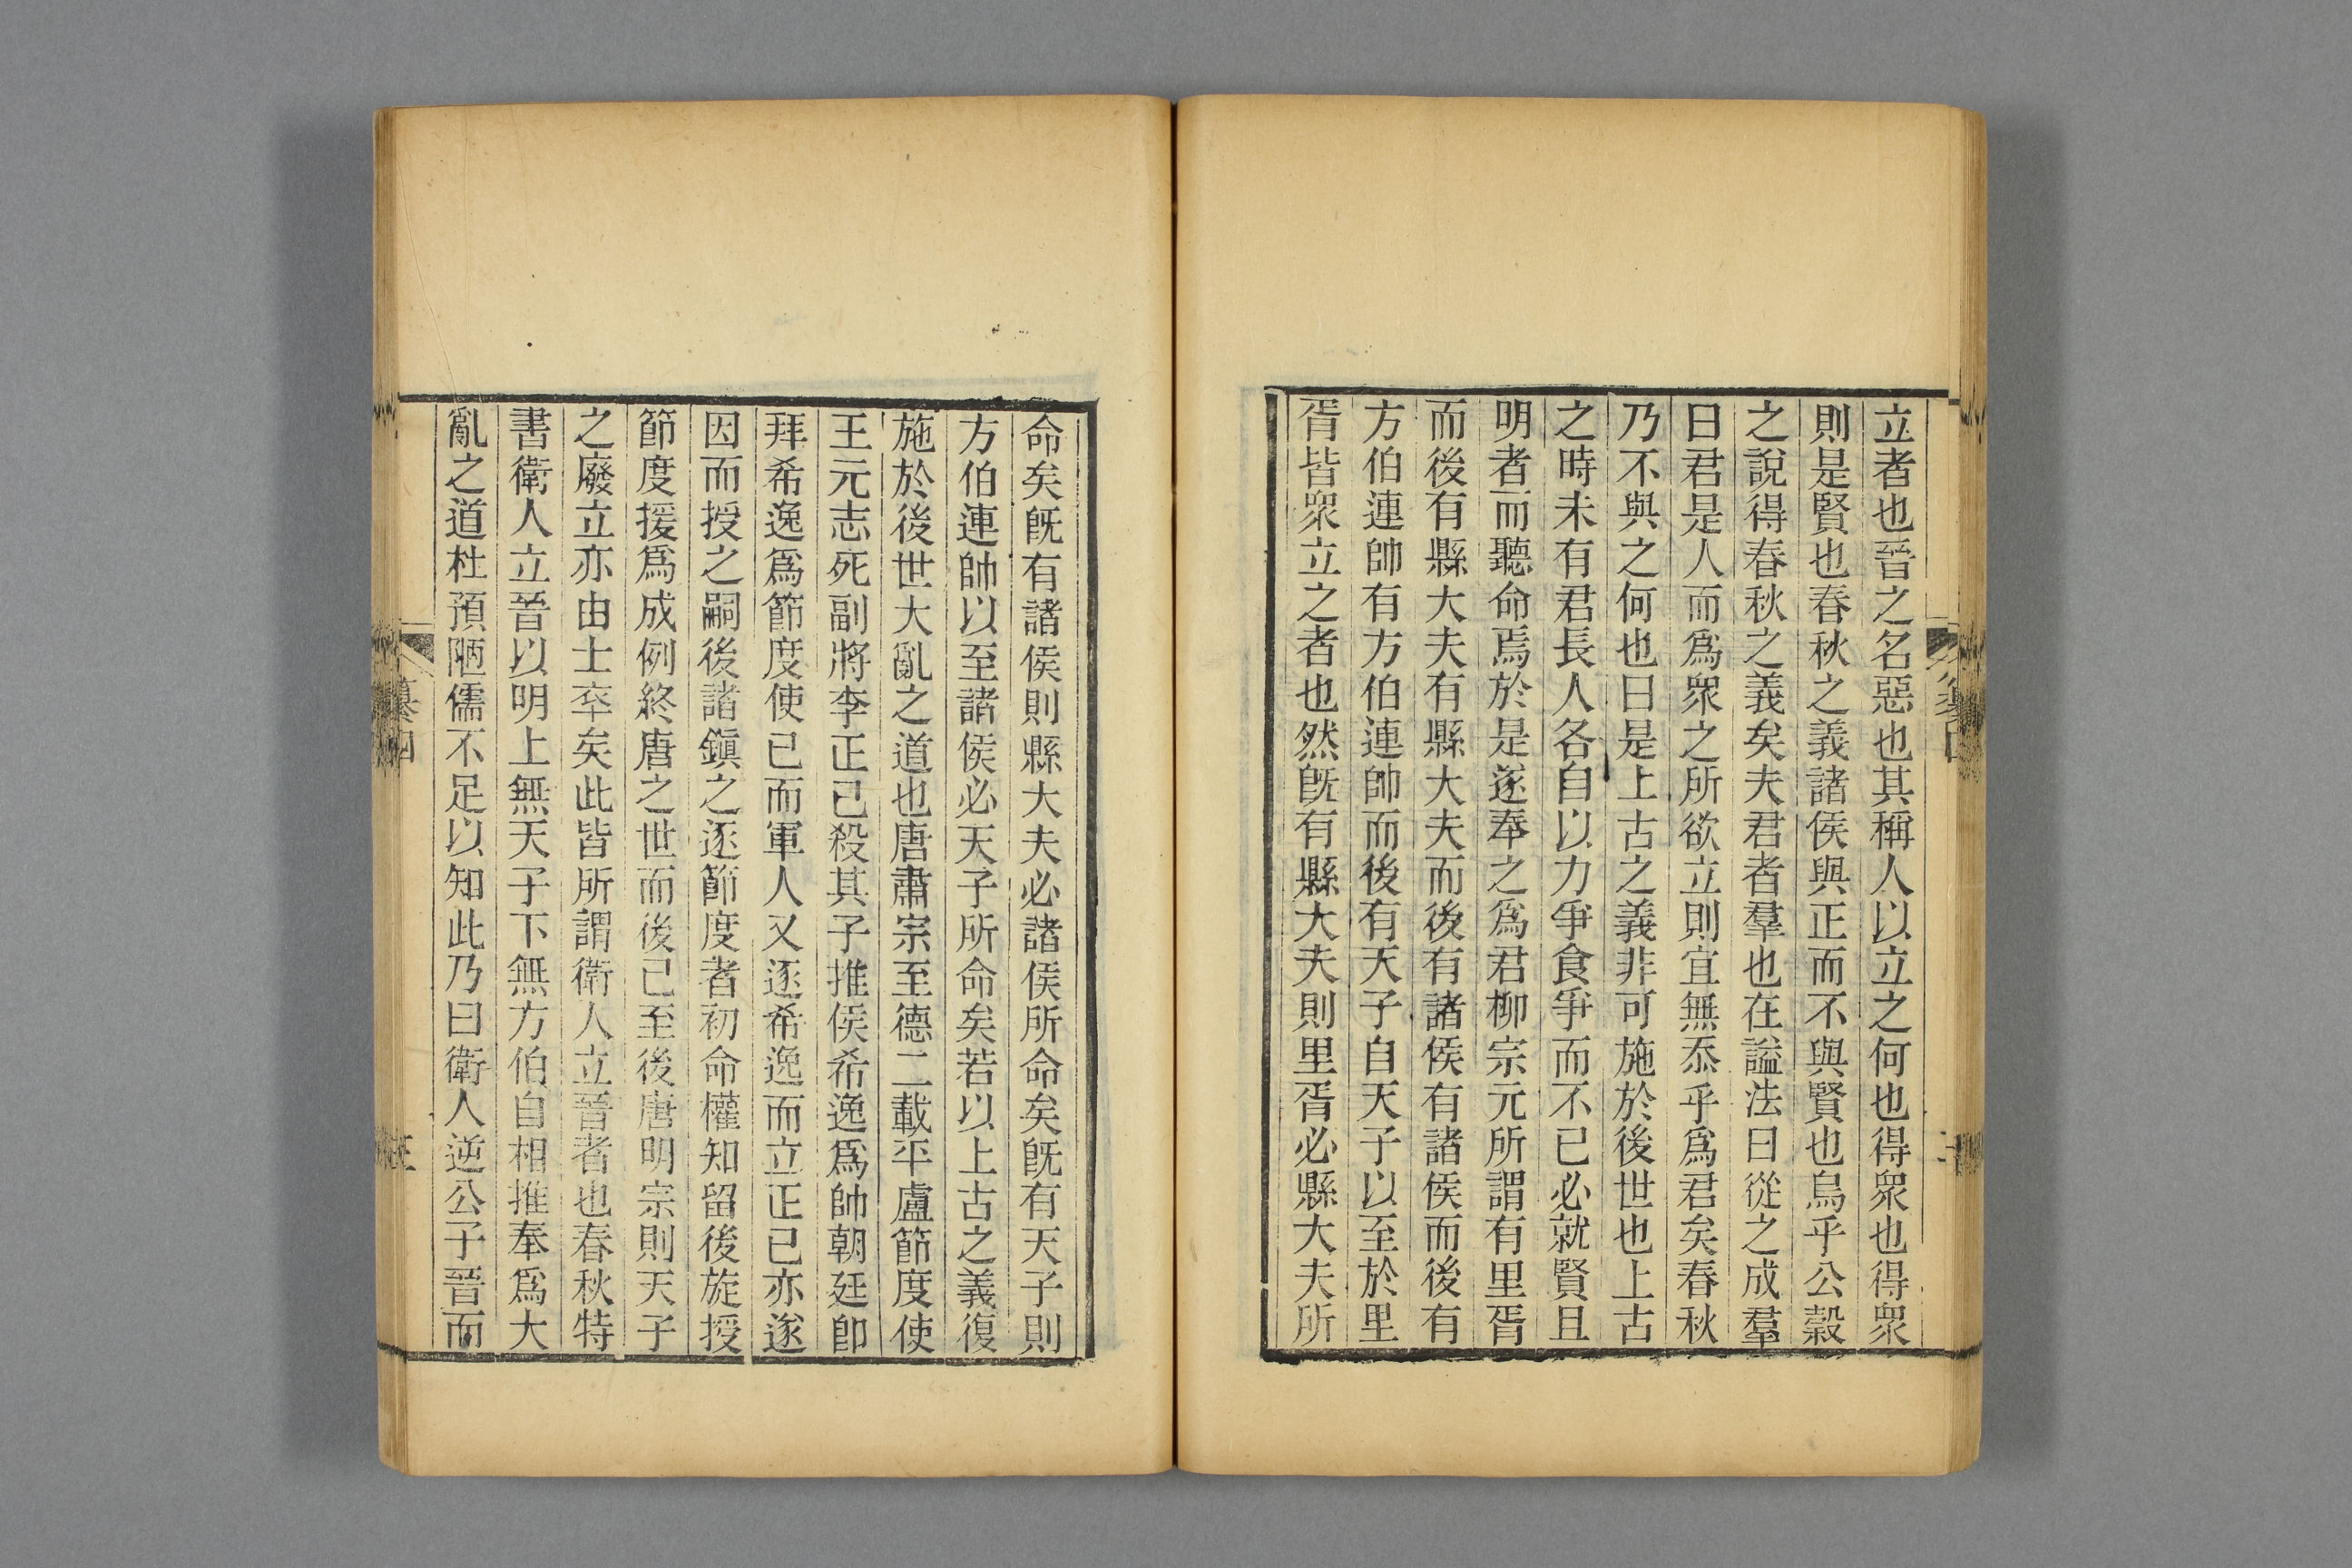 立者也晉之名惡也其稱人以立之何也得眾也得眾
則是賢也春秋之義諸侯與正而不與賢也烏乎公穀
之說得春秋之義矣夫君者羣也在謚法曰從之成羣
曰君是人而爲眾之所欲立則宜無忝乎爲君矣春秋
乃不與之何也曰是上古之義非可施於後世也上古
之時未有君長人各自以力爭食爭而不已必就賢且
明者而聽命焉於是遂奉之爲君柳宗元所謂有里胥
而後有縣大夫有縣大夫而後有諸侯有諸侯而後有
方伯連帥有方伯連帥而後有天子自天子以至於里
胥皆眾立之者也然旣有縣大夫則里胥必縣大夫所
命矣旣有諸侯則縣大夫必諸侯所命矣旣有天子則
方伯連帥以至諸侯必天子所命矣若以上古之義復
施於後世大亂之道也唐肅宗至德二載平盧節度使
王元志死副將李正己殺其子推侯希逸爲帥朝廷卽
拜希逸爲節度使已而軍人又逐希逸而立正已亦遂
因而授之嗣後諸鎭之逐節度者初命權知留後旋授
節度援爲成例終唐之世而後已至後唐明宗則天子
之廢立亦由士卒矣此皆所謂衛人立晉者也春秋特
書衛人立晉以明上無天子下無方伯自相推奉爲大
亂之道杜預陋儒不足以知此乃曰衛人逆公子晉而